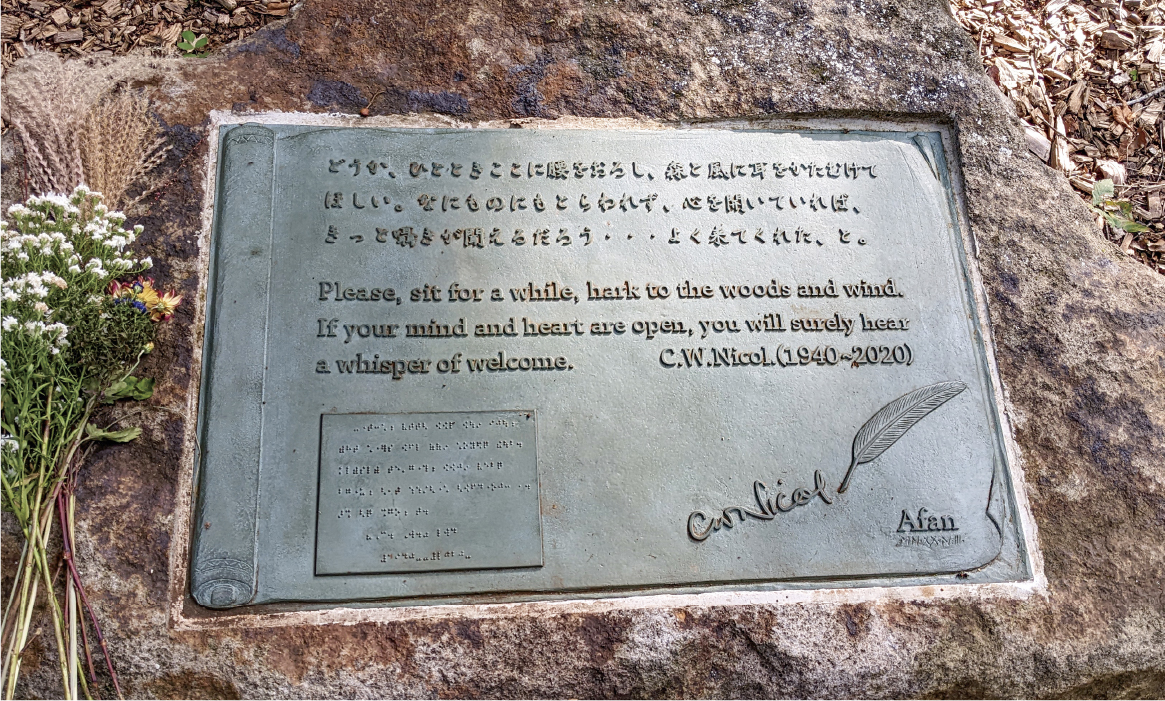 どうか、ひとときここに腰をおろし、森と風に耳をかたむけて
ほしい。なにものにもとらわれず、心を開いていれば、
きっと囁きが聞えるだろう・・・よく来てくれた、と。
Please, sit for a while, hark to the woods and wind.
If your mind and heart are open, you will surely hear
a whisper of welcome. C.W.Nicol.(1940~2020)
CWNicol
Afan